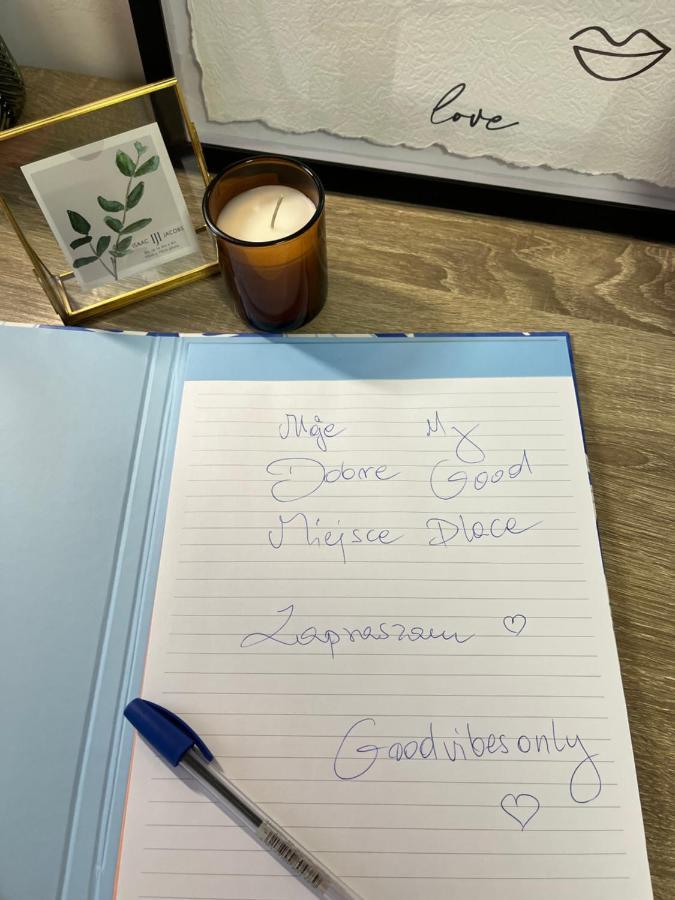 love
ISAAC JACOBS
Moje My
Dobre Good
Miejsce Place
Zapraszam ♡
Good vibes only
♡